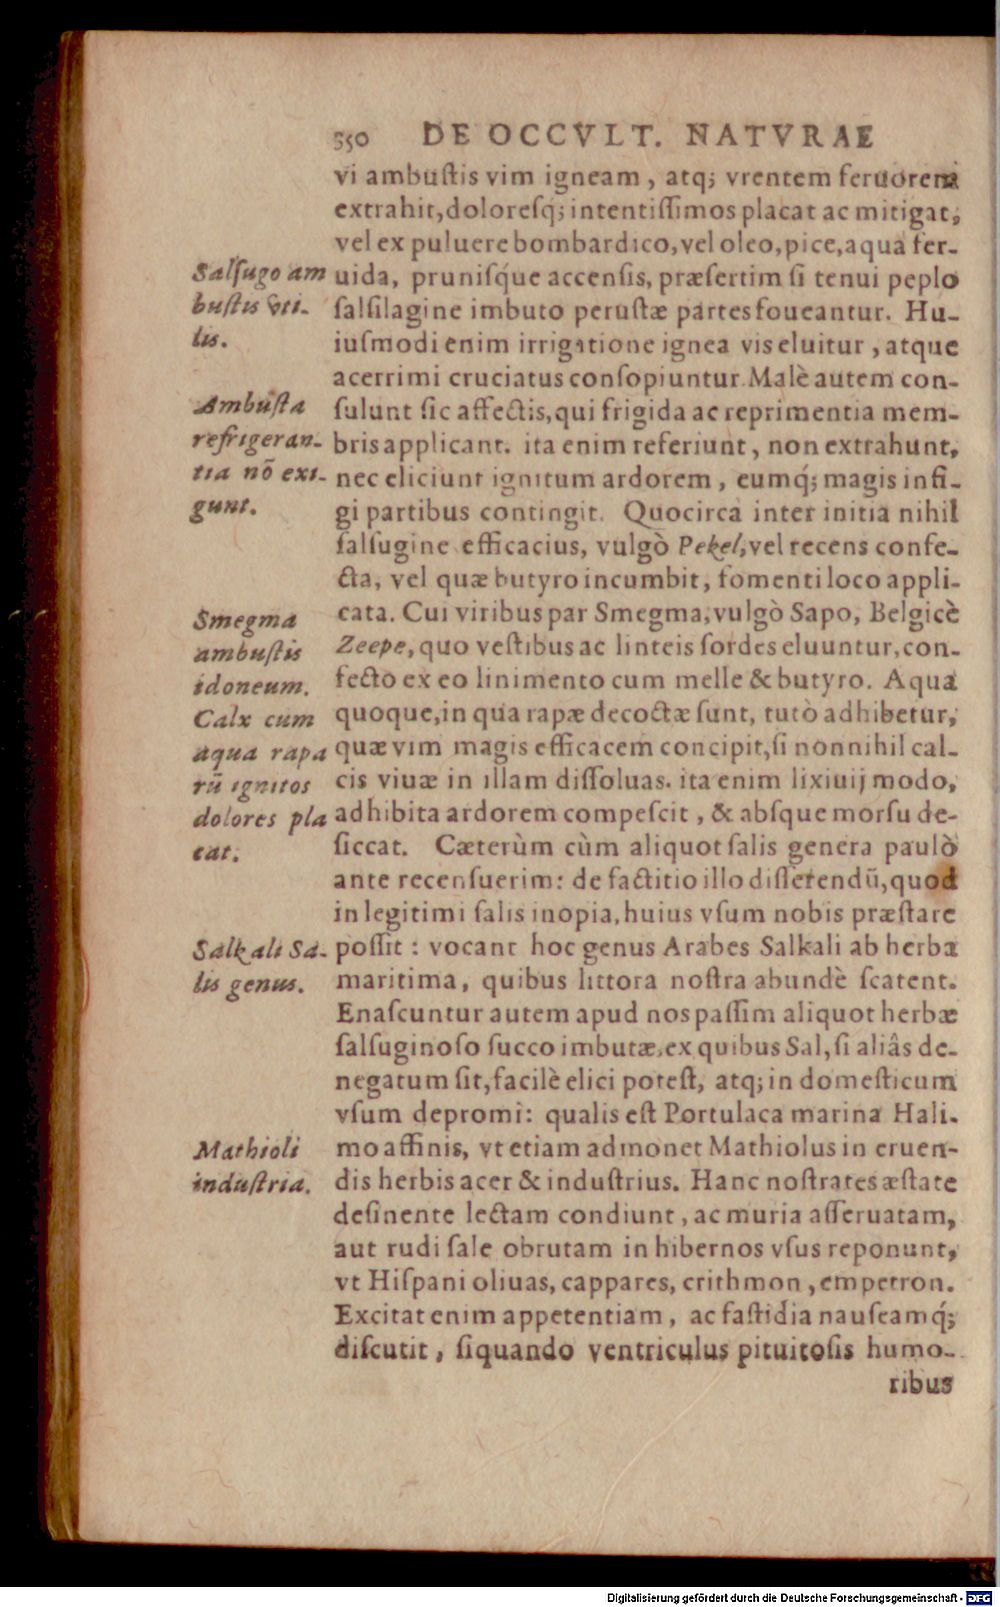 550 DE OCCVLT. NATVRAE
vi ambuſtis vim igneam, atq; vrentem feruorem
extrahit, doloreſq; intentiſſimos placat ac mitigat,
vel ex puluere bombardico, vel oleo, pice, aqua fer-
uida, pruniſq́ue accenſis, præſertim ſi tenui peplo
ſalſilagine imbuto peruſtæ partes foueantur. Hu-
iuſmodi enim irrigatione ignea vis eluitur, atque
acerrimi cruciatus conſopiuntur. Malè autem con-
ſulunt ſic affectis, qui frigida ac reprimentia mem-
bris applicant. ita enim referiunt, non extrahunt,
nec eliciunt ignitum ardorem, eumq́; magis infi-
gi partibus contingit. Quocirca inter initia nihil
ſalſugine efficacius, vulgò Pekel, vel recens confe-
cta, vel quæ butyro incumbit, fomenti loco appli-
cata. Cui viribus par Smegma, vulgò Sapo, Belgicè
Zeepe, quo veſtibus ac linteis ſordes eluuntur, con-
fecto ex eo linimento cum melle & butyro. Aqua
quoque, in qua rapæ decoctæ ſunt, tutò adhibetur,
quæ vim magis efficacem concipit, ſi nonnihil cal-
cis viuæ in illam diſſoluas. ita enim lixiuij modo,
adhibita ardorem compeſcit, & abſque morſu de-
ſiccat. Cæterùm cùm aliquot ſalis genera paulò
ante recenſuerim: de factitio illo diſſerendū, quod
in legitimi ſalis inopia, huius vſum nobis præſtare
poſſit: vocant hoc genus Arabes Salkali ab herba
maritima, quibus littora noſtra abundè ſcatent.
Enaſcuntur autem apud nos paſſim aliquot herbæ
ſalſuginoſo ſucco imbutæ, ex quibus Sal, ſi aliâs de-
negatum ſit, facilè elici poteſt, atq; in domeſticum
vſum depromi: qualis eſt Portulaca marina Hali-
mo affinis, vt etiam admonet Mathiolus in eruen-
dis herbis acer & induſtrius. Hanc noſtrates æſtate
deſinente lectam condiunt, ac muria aſſeruatam,
aut rudi ſale obrutam in hibernos vſus reponunt,
vt Hiſpani oliuas, cappares, crithmon, empetron.
Excitat enim appetentiam, ac faſtidia nauſeamq́;
diſcutit, ſiquando ventriculus pituitoſis humo-
ribus
Salſugo am
buſtis vti-
lis.
Ambuſta
refrigeran-
tia nō exi-
gunt.
Smegma
ambuſtis
idoneum.
Calx cum
aqua rapa
rū ignitos
dolores pla
cat.
Salkali Sa-
lis genus.
Mathioli
induſtria.
Digitalisierung gefördert durch die Deutsche Forschungsgemeinschaft - DFG